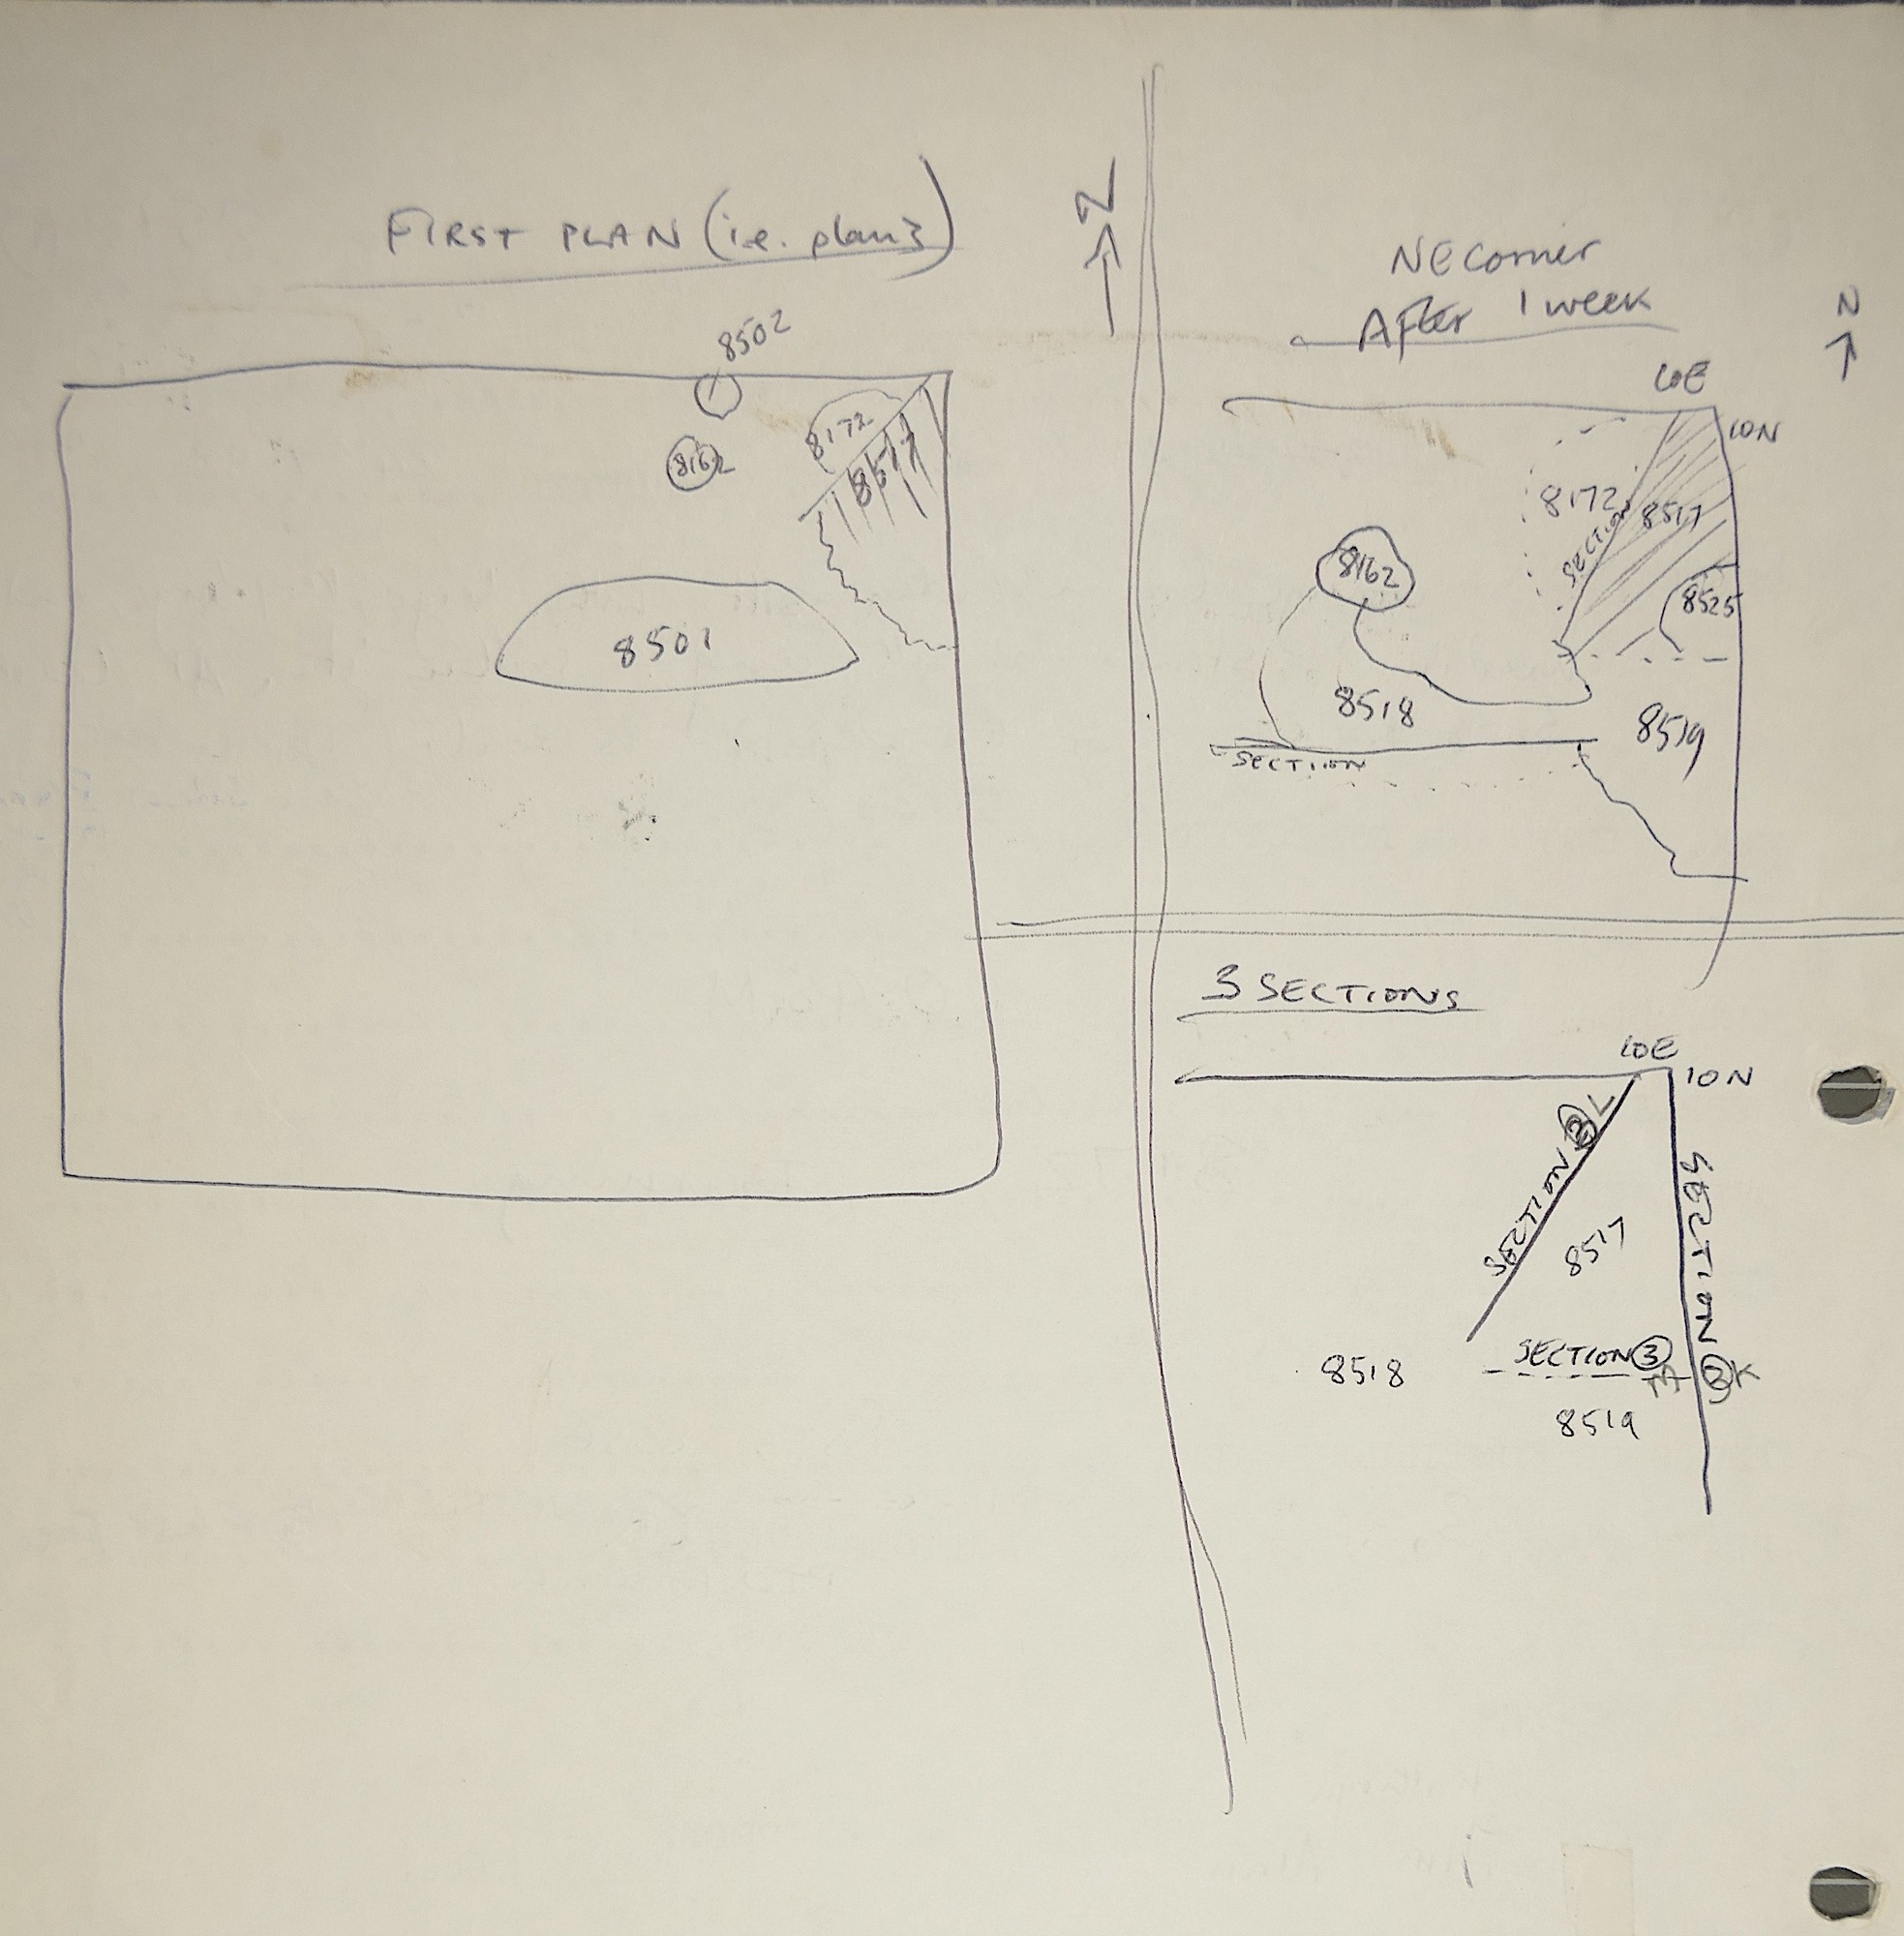 FIRST PLAN (i.e. plan 3)
N
8502
8172
8162
8517
8501
NE Corner
After 1 week
N
10E
10N
8172
SECTION
8517
8162
8525
8518
8519
SECTION
3 SECTIONS
10E
10N
SECTION L
SECTION K
8517
SECTION 3 M
8518
8519